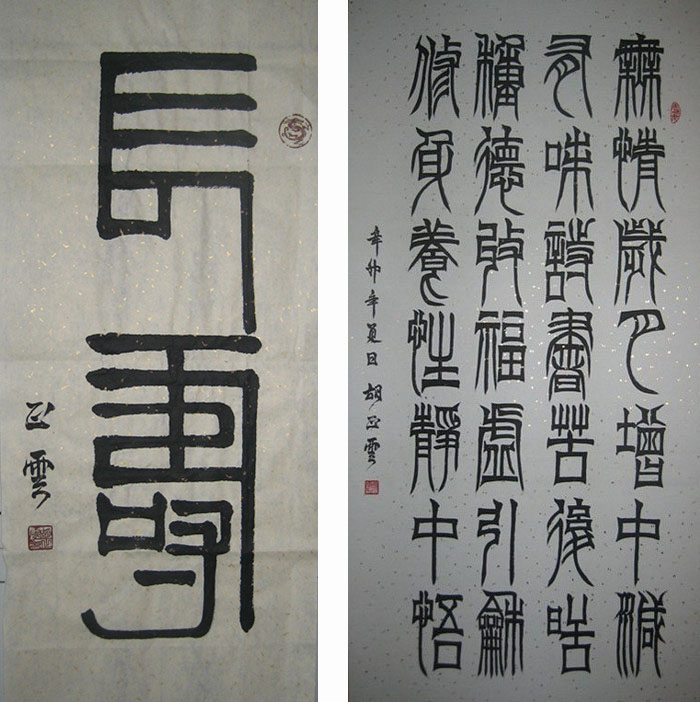 長壽
正雲
無情歲月增中減
有味詩書苦後甜
種德收福虛引龢
修身養性靜中悟
辛卯年夏日 胡正雲